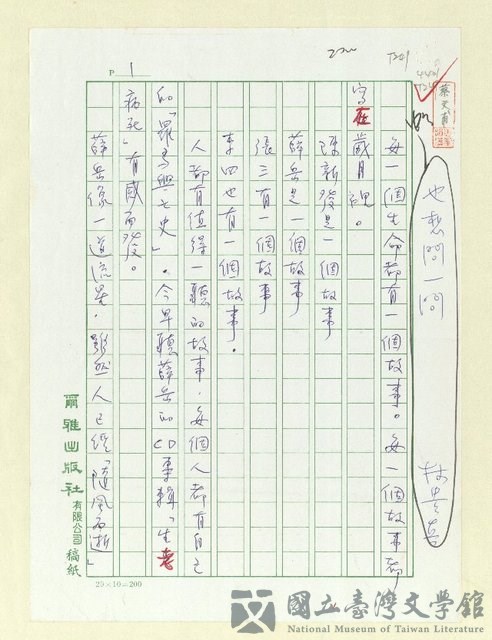 P 1
也想問一問
每一個生命都有一個故事。每一個故事都
寫在歲月裡。
陳新發是一個故事
薛岳是一個故事
張三有一個故事
李四也有一個故事。
人都有值得一聽的故事，每個人都有自己
的「異鳥興亡史」。今早聽薛岳的CD專輯「生老
病死」有感而發。
薛岳像一道流星，雖然人已經「隨風而逝」
爾雅出版社有限公司稿紙
20×10=200
國立臺灣文學館
National Museum of Taiwan Literature